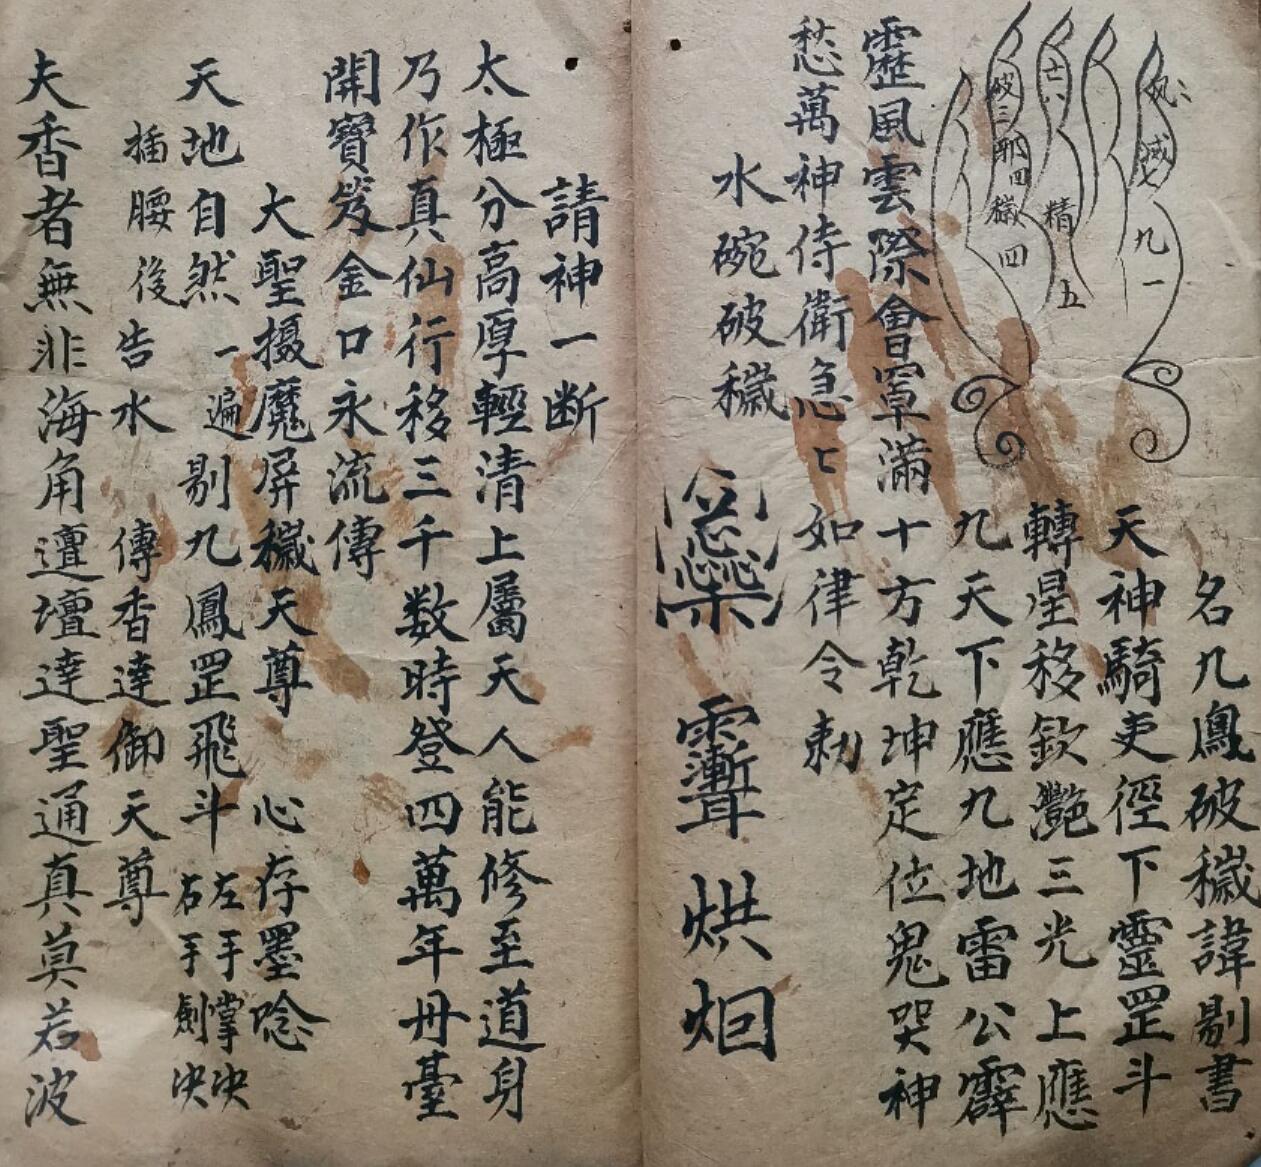 名九鳳破穢諱剔書
天神騎吏徑下靈罡斗
轉星移欽艷三光上應
九天下應九地雷公霹
靂風雲際會罩滿十方乾坤定位鬼哭神
愁萬神侍衛急匕如律令勅
水碗破穢
烘烟
請神一断
太極分高厚輕清上屬天人能修至道身
乃作真仙行移三千数時登四萬年丹臺
開寶笈金口永流傳
大聖攝魔屏穢天尊 心存墨唸
天地自然 一遍 剔九鳳罡飛斗 左手掌决 右手劍决
插腰後告水 傳香達御天尊
夫香者無非海角邅壇達聖通真莫若波